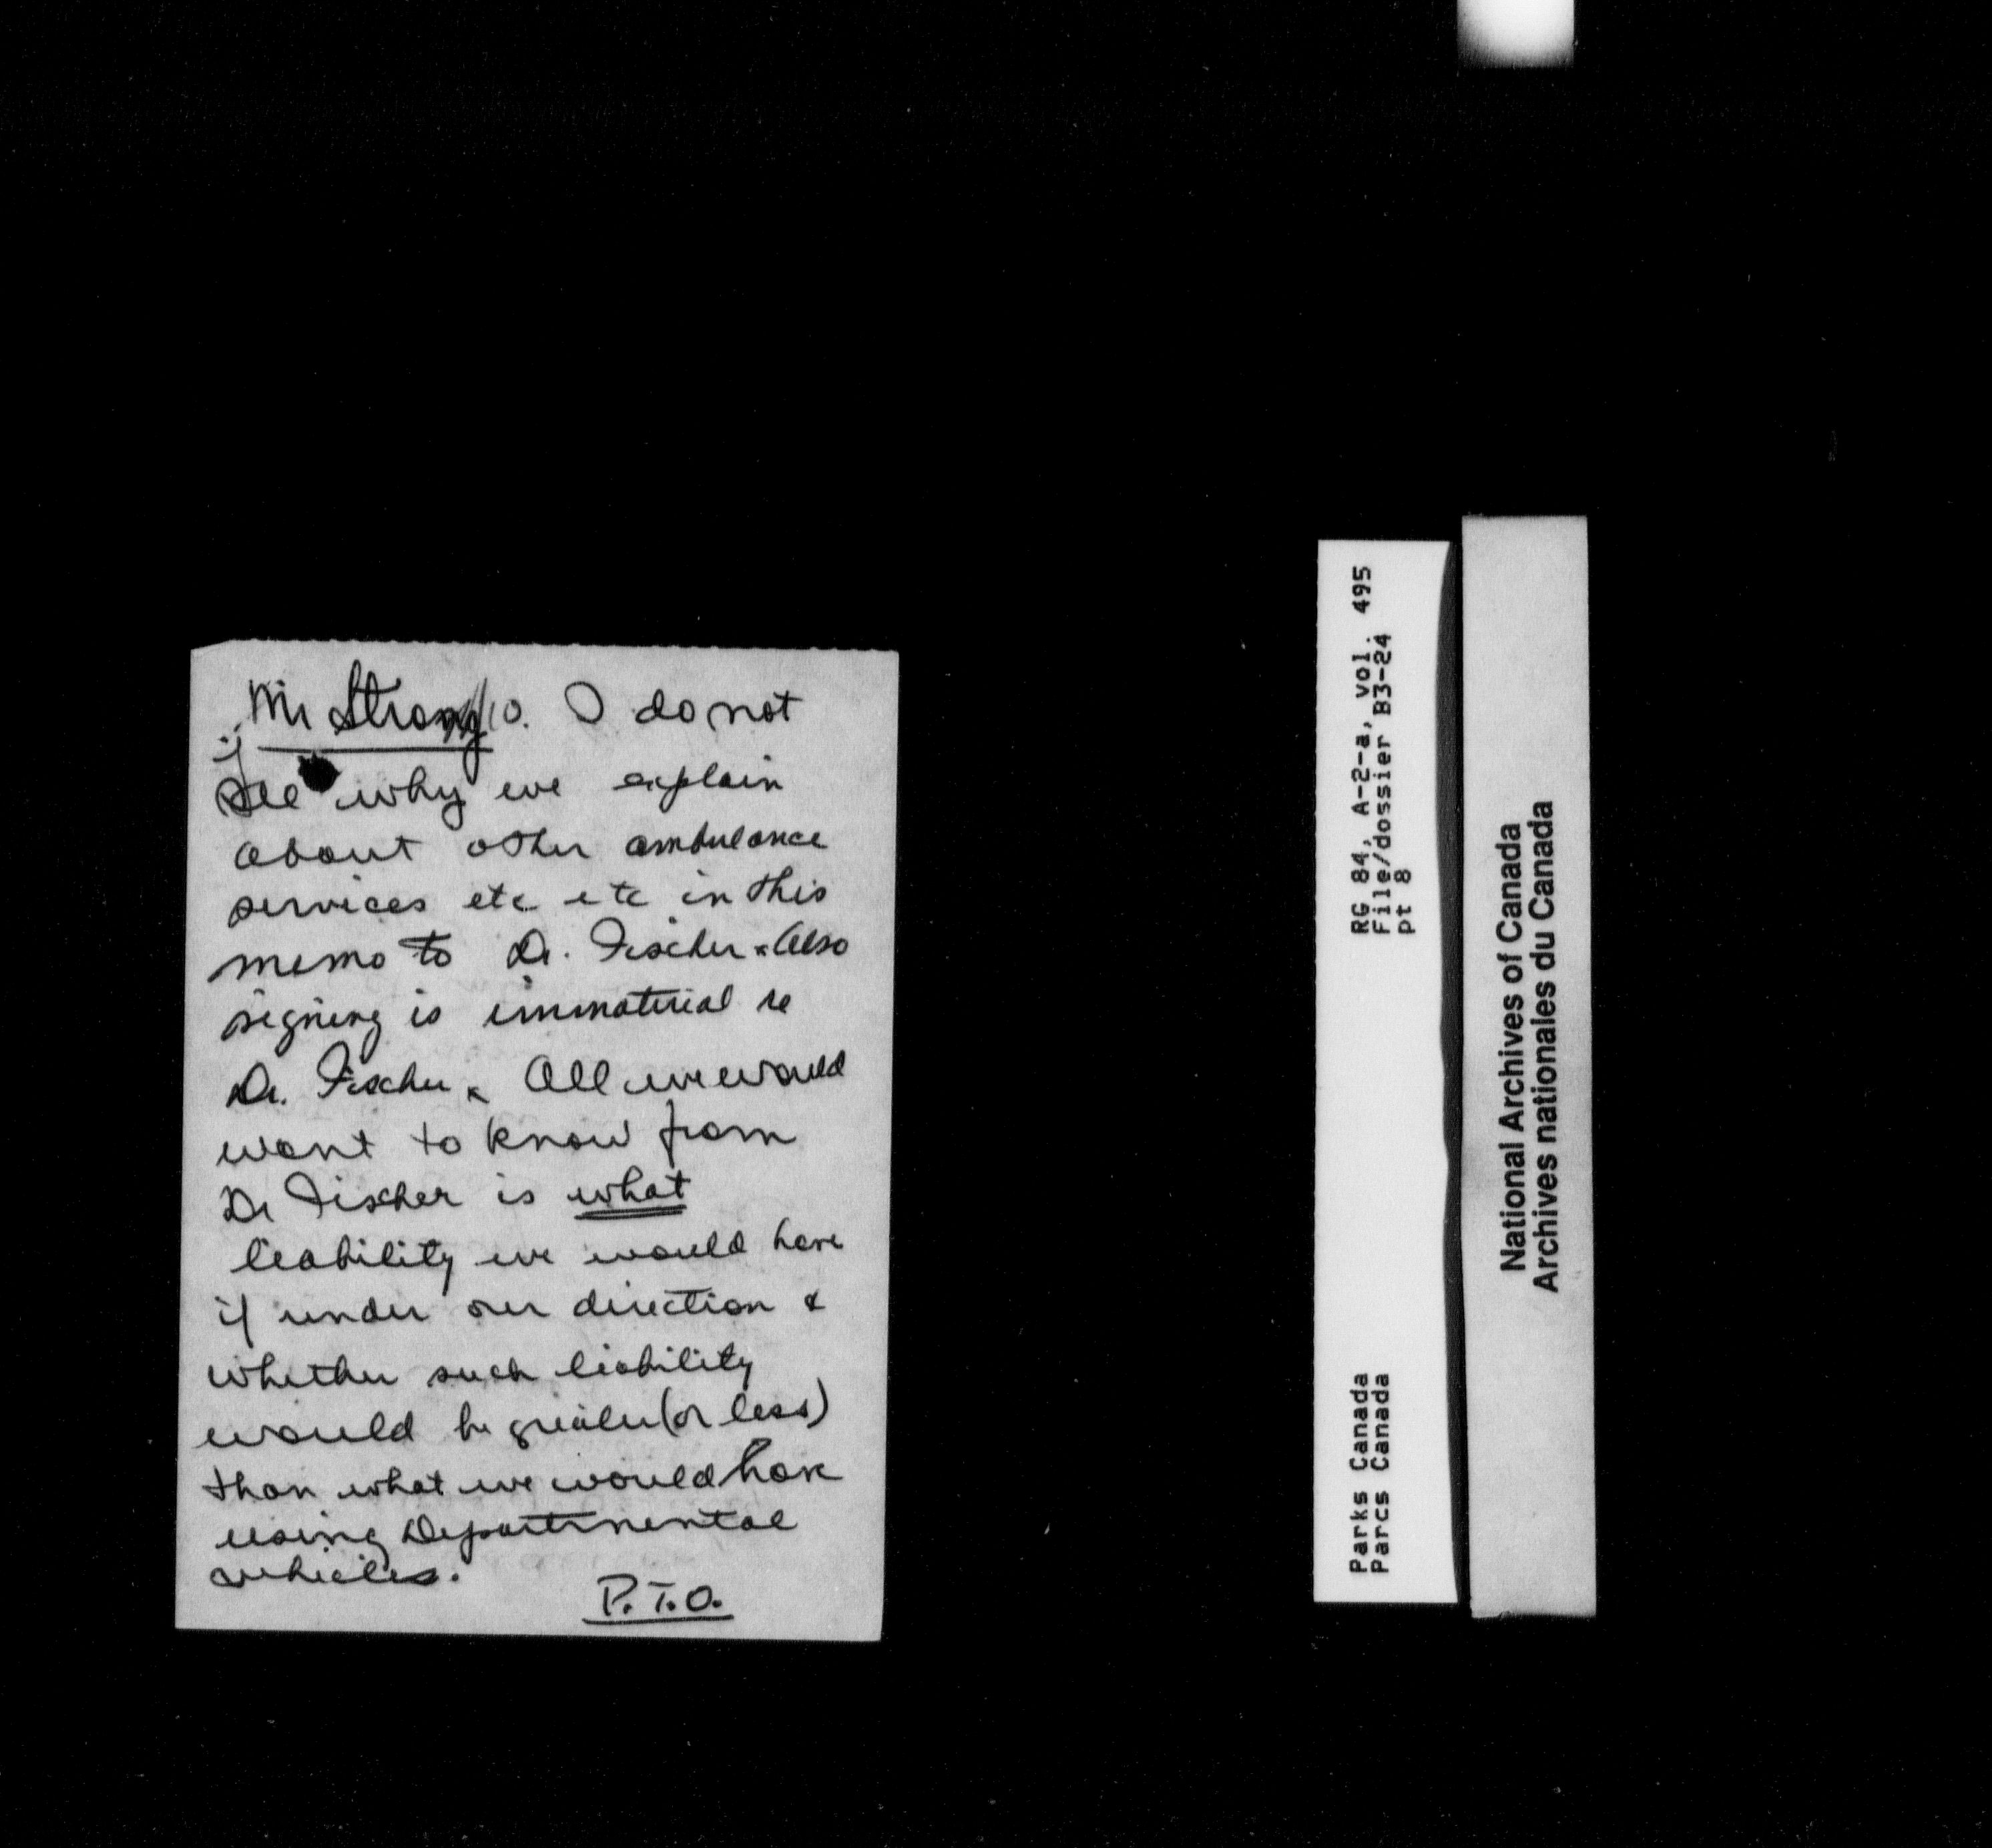 Mr Strong 10. I do not
see why we explain
about other ambulance
services etc etc in this
memo to Dr. Fischer. Also
signing is immaterial re
Dr. Fischer. All we would
want to know from
Dr Fischer is what
liability we would have
if under our direction &
whether such liability
would be greater (or less)
than what we would have
using Departmental
vehicles.
P.T.O.
RG 84, A-2-a, vol. 495
File/dossier B3-24
pt 8
Parks Canada
Parcs Canada
National Archives of Canada
Archives nationales du Canada